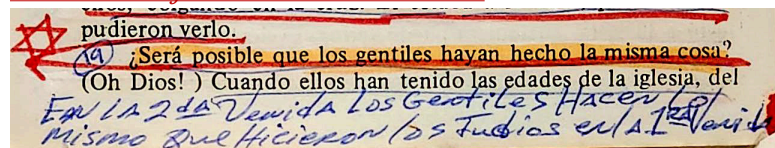 pudieron verlo.
19 ¿Será posible que los gentiles hayan hecho la misma cosa?
(Oh Dios! ) Cuando ellos han tenido las edades de la iglesia, del
En LA 2da Venida Los Gentiles HACEN Lo
mismo Que Hicieron los Judios en LA 1RA Venida